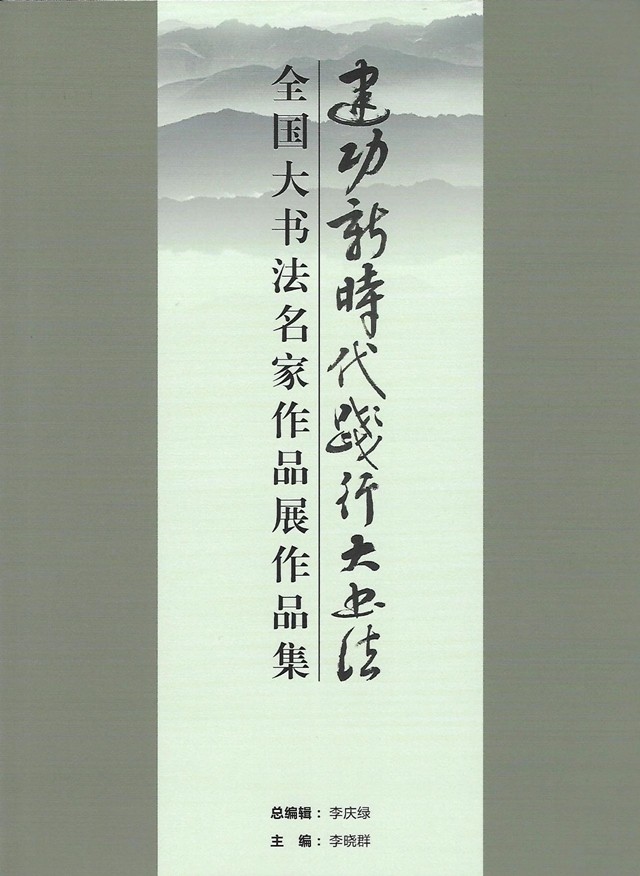 建功新時代践行大书法
全国大书法名家作品展作品集
总编辑：李庆绿
主　编：李晓群